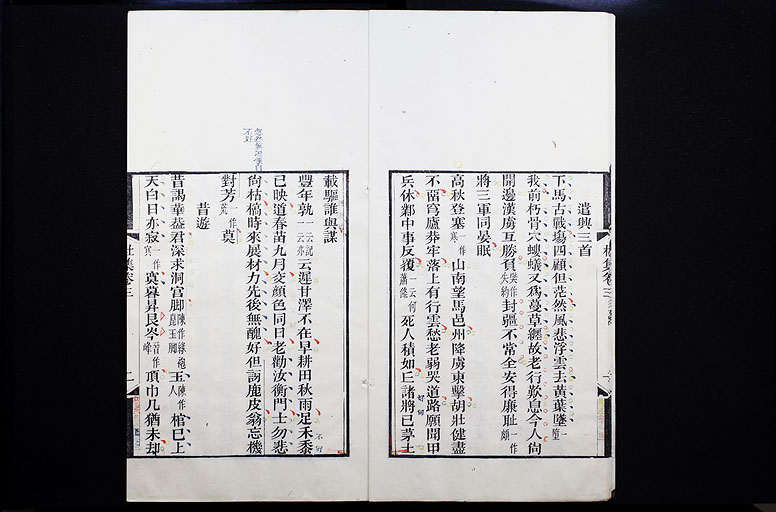 遣興三首
下馬古戰場四顧但茫然風悲浮雲去黃葉墜一作墮
我前朽骨穴螻蟻又為蔓草纏故老行歎息今人尙
開邊漢虜互勝負封疆不常全安得廉耻一作頗
將三軍同晏眠
高秋登塞一作寒山南望馬邑州降虜東擊胡壯健盡
不畱穹廬莽牢落上有行雲愁老弱哭道路願聞甲
兵休鄴中事反覆一云何蕭條死人積如丘諸將已茅土
載驅誰與謀
豐年孰一云既一云亦云遲甘澤不在早耕田秋雨足禾黍
已映道春苗九月交顏色同日老勸汝衡門士勿悲
尙枯槁時來展材力先後無醜好但訝鹿皮翁忘機
對芳一作荒草
昔遊
昔謁華葢君深求洞宮脚玉棺已上
天白日亦寂一作寞暮昇艮岑頂巾几猶未却
杜集卷三
不好